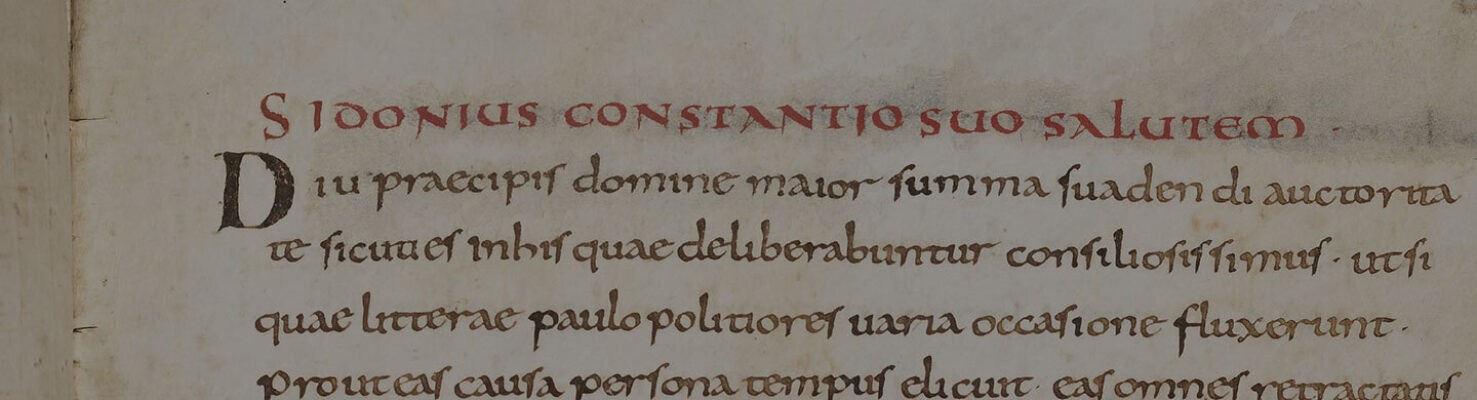 SIDONIUS CONSTANTIO SUO SALUTEM ·
Diu praecipis domine maior summa suadendi auctorita
te sicuti es inhis quae deliberabuntur consiliosissimus · utsi
quae litterae paulo politiores uaria occasione fluxerunt ·
prouteas causa persona tempus elicuit · eas omnes retractatis